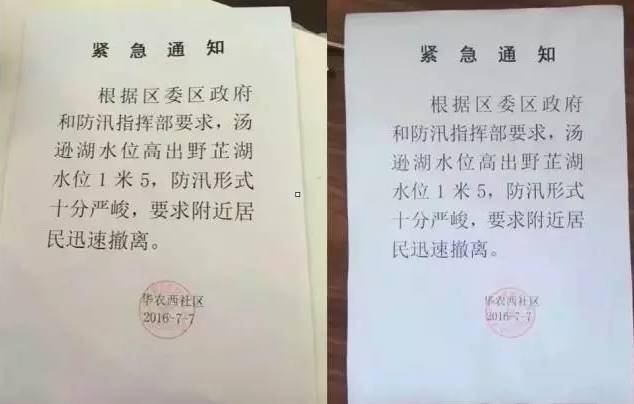 紧急通知
根据区委区政府
和防汛指挥部要求，汤
逊湖水位高出野芷湖
水位1米5，防汛形式
十分严峻，要求附近居
民迅速撤离。
华农西社区
2016-7-7
紧急通知
根据区委区政府
和防汛指挥部要求，汤
逊湖水位高出野芷湖
水位1米5，防汛形式
十分严峻，要求附近居
民迅速撤离。
华农西社区
2016-7-7